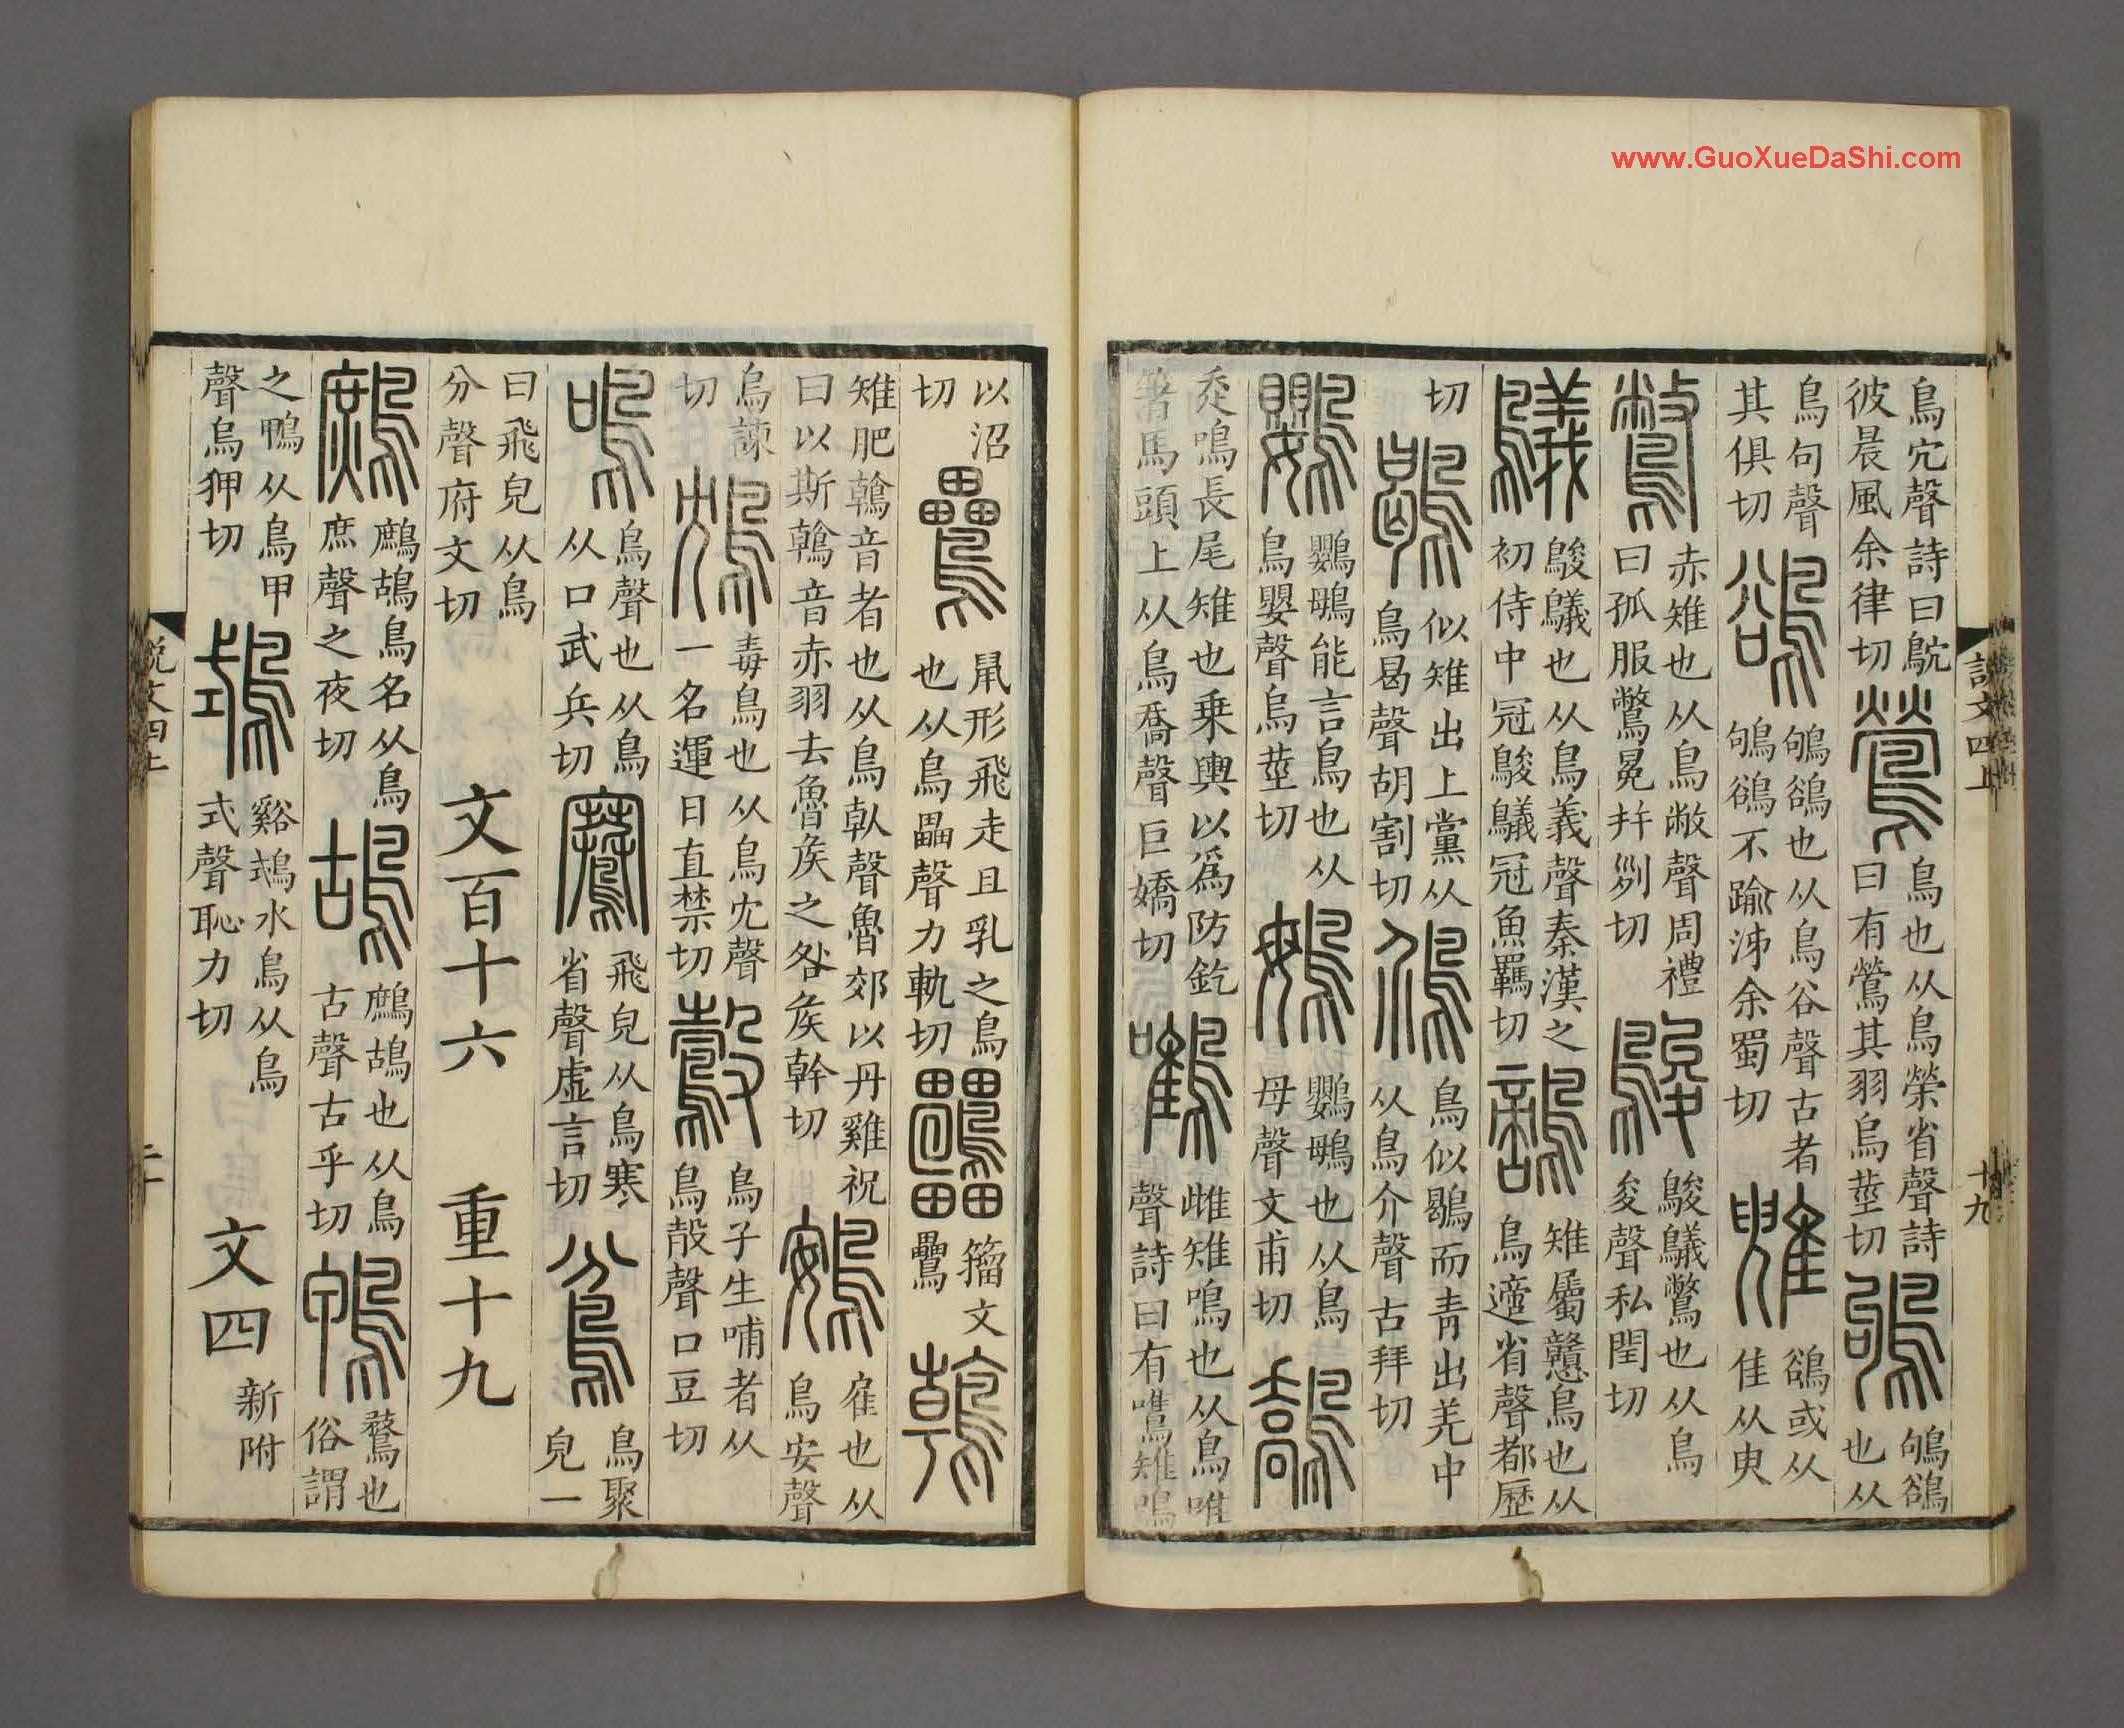 www.GuoXueDaShi.com
鳥穴聲詩曰鴥彼晨風余律切 鶯 鳥也从鳥榮省聲詩曰有鶯其羽烏莖切 鴝 鴝鵒也从
鳥句聲其俱切 鵒 鴝鵒也从鳥谷聲古者鴝鵒不踰泲余蜀切 鵒或从隹从臾
鷩 赤雉也从鳥敝聲周禮曰孤服鷩冕幷列切 鵔 鵔鸃鷩也从鳥夋聲私閏切
鸃 鵔鸃也从鳥義聲秦漢之初侍中冠鵔鸃冠魚羈切 雉屬戇鳥也从鳥適省聲都歷
切 鶡 似雉出上黨从鳥曷聲胡割切 鳥似鶡而青出羌中从鳥介聲古拜切
鸚 鸚䳇能言鳥也从鳥嬰聲烏莖切 䳇 鸚䳇也从鳥母聲文甫切 鷮
走鳴長尾雉也乗輿以爲防釳箸馬頭上从鳥喬聲巨嬌切 鷕 雌雉鳴也从鳥唯聲詩曰有鷕雉鳴
說文四上
十九
以沼切 鸓 鼠形飛走且乳之鳥也从鳥畾聲力軌切 籒文鸓 鶾
雉肥鶾音者也从鳥倝聲魯郊以丹雞祝曰以斯鶾音赤羽去魯矦之咎矦幹切 鴳 雇也从鳥安聲
烏諫切 鴆 毒鳥也从鳥冘聲一名運日直禁切 鷇 鳥子生哺者从鳥㱿聲口豆切
鳴 鳥聲也从鳥从口武兵切 鶱 飛皃从鳥寒省聲虛言切 鳻 鳥聚皃一
曰飛皃从鳥分聲府文切
文百十六 重十九
鷓 鷓鴣鳥名从鳥庶聲之夜切 鴣 鷓鴣也从鳥古聲古乎切 鴨 鶩也俗謂
之鴨从鳥甲聲烏狎切 鵡 谿䳵水鳥从鳥式聲恥力切 文四 新附
說文四上
二十